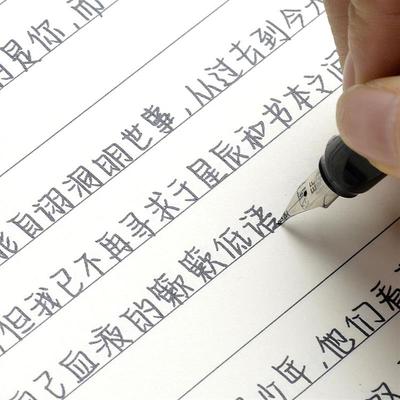 是你,而
自诩洞明世事,从过去到今
但我已不再寻求于星辰和书本之间
自己血液的簌簌低语
少年,他们看